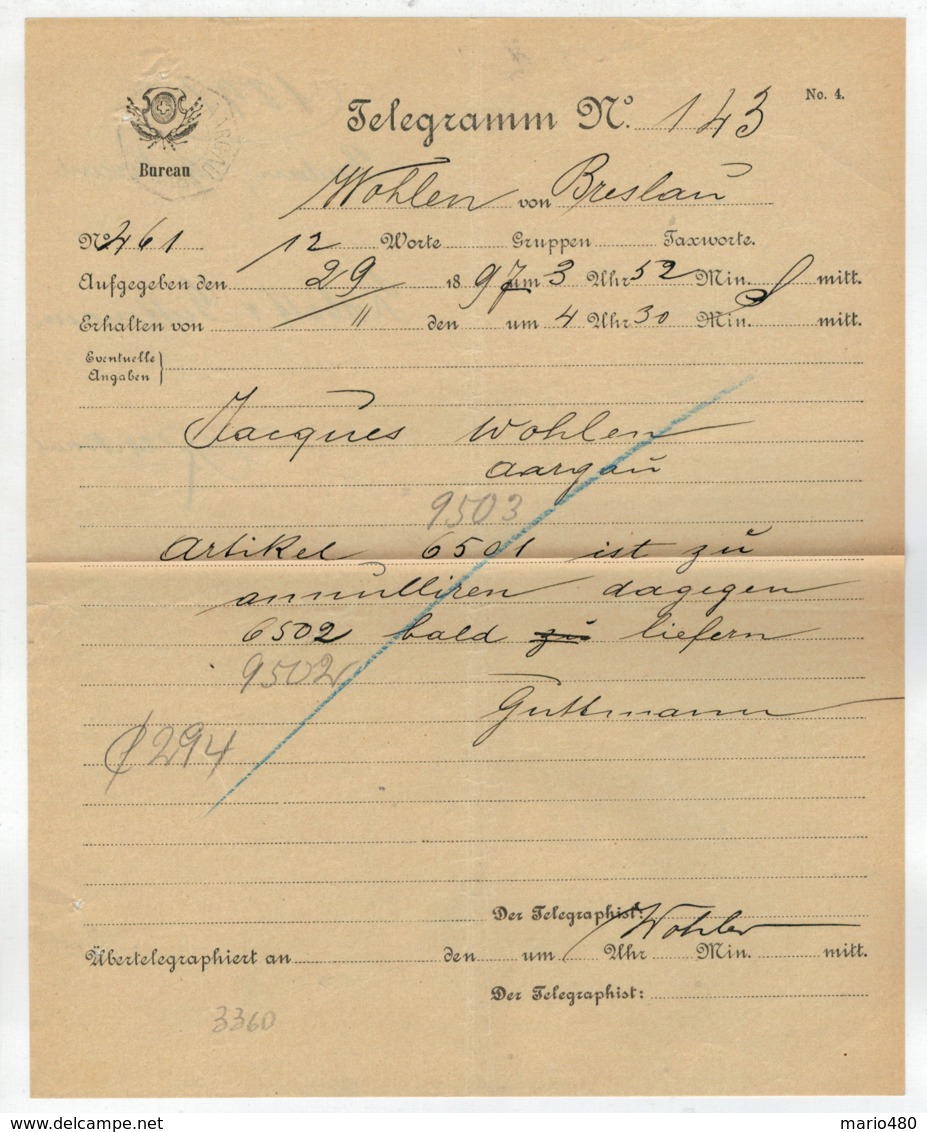 No. 4.
Telegramm No. 143
Bureau
Wohlen von Breslau
No 461 12 Worte Gruppen Taxworte.
Aufgegeben den 29/11 1897 um 3 Uhr 52 Min. mitt.
Erhalten von den um 4 Uhr 30 Min. mitt.
Eventuelle
Angaben
Jacques Wohlen
Aargau
9503
Artikel 6501 ist zu
annulliren dagegen
6502 bald zu liefern
9502
Guttmann
294
Der Telegraphist: Wohler
Übertelegraphiert an den um Uhr Min. mitt.
Der Telegraphist:
3360
mario480